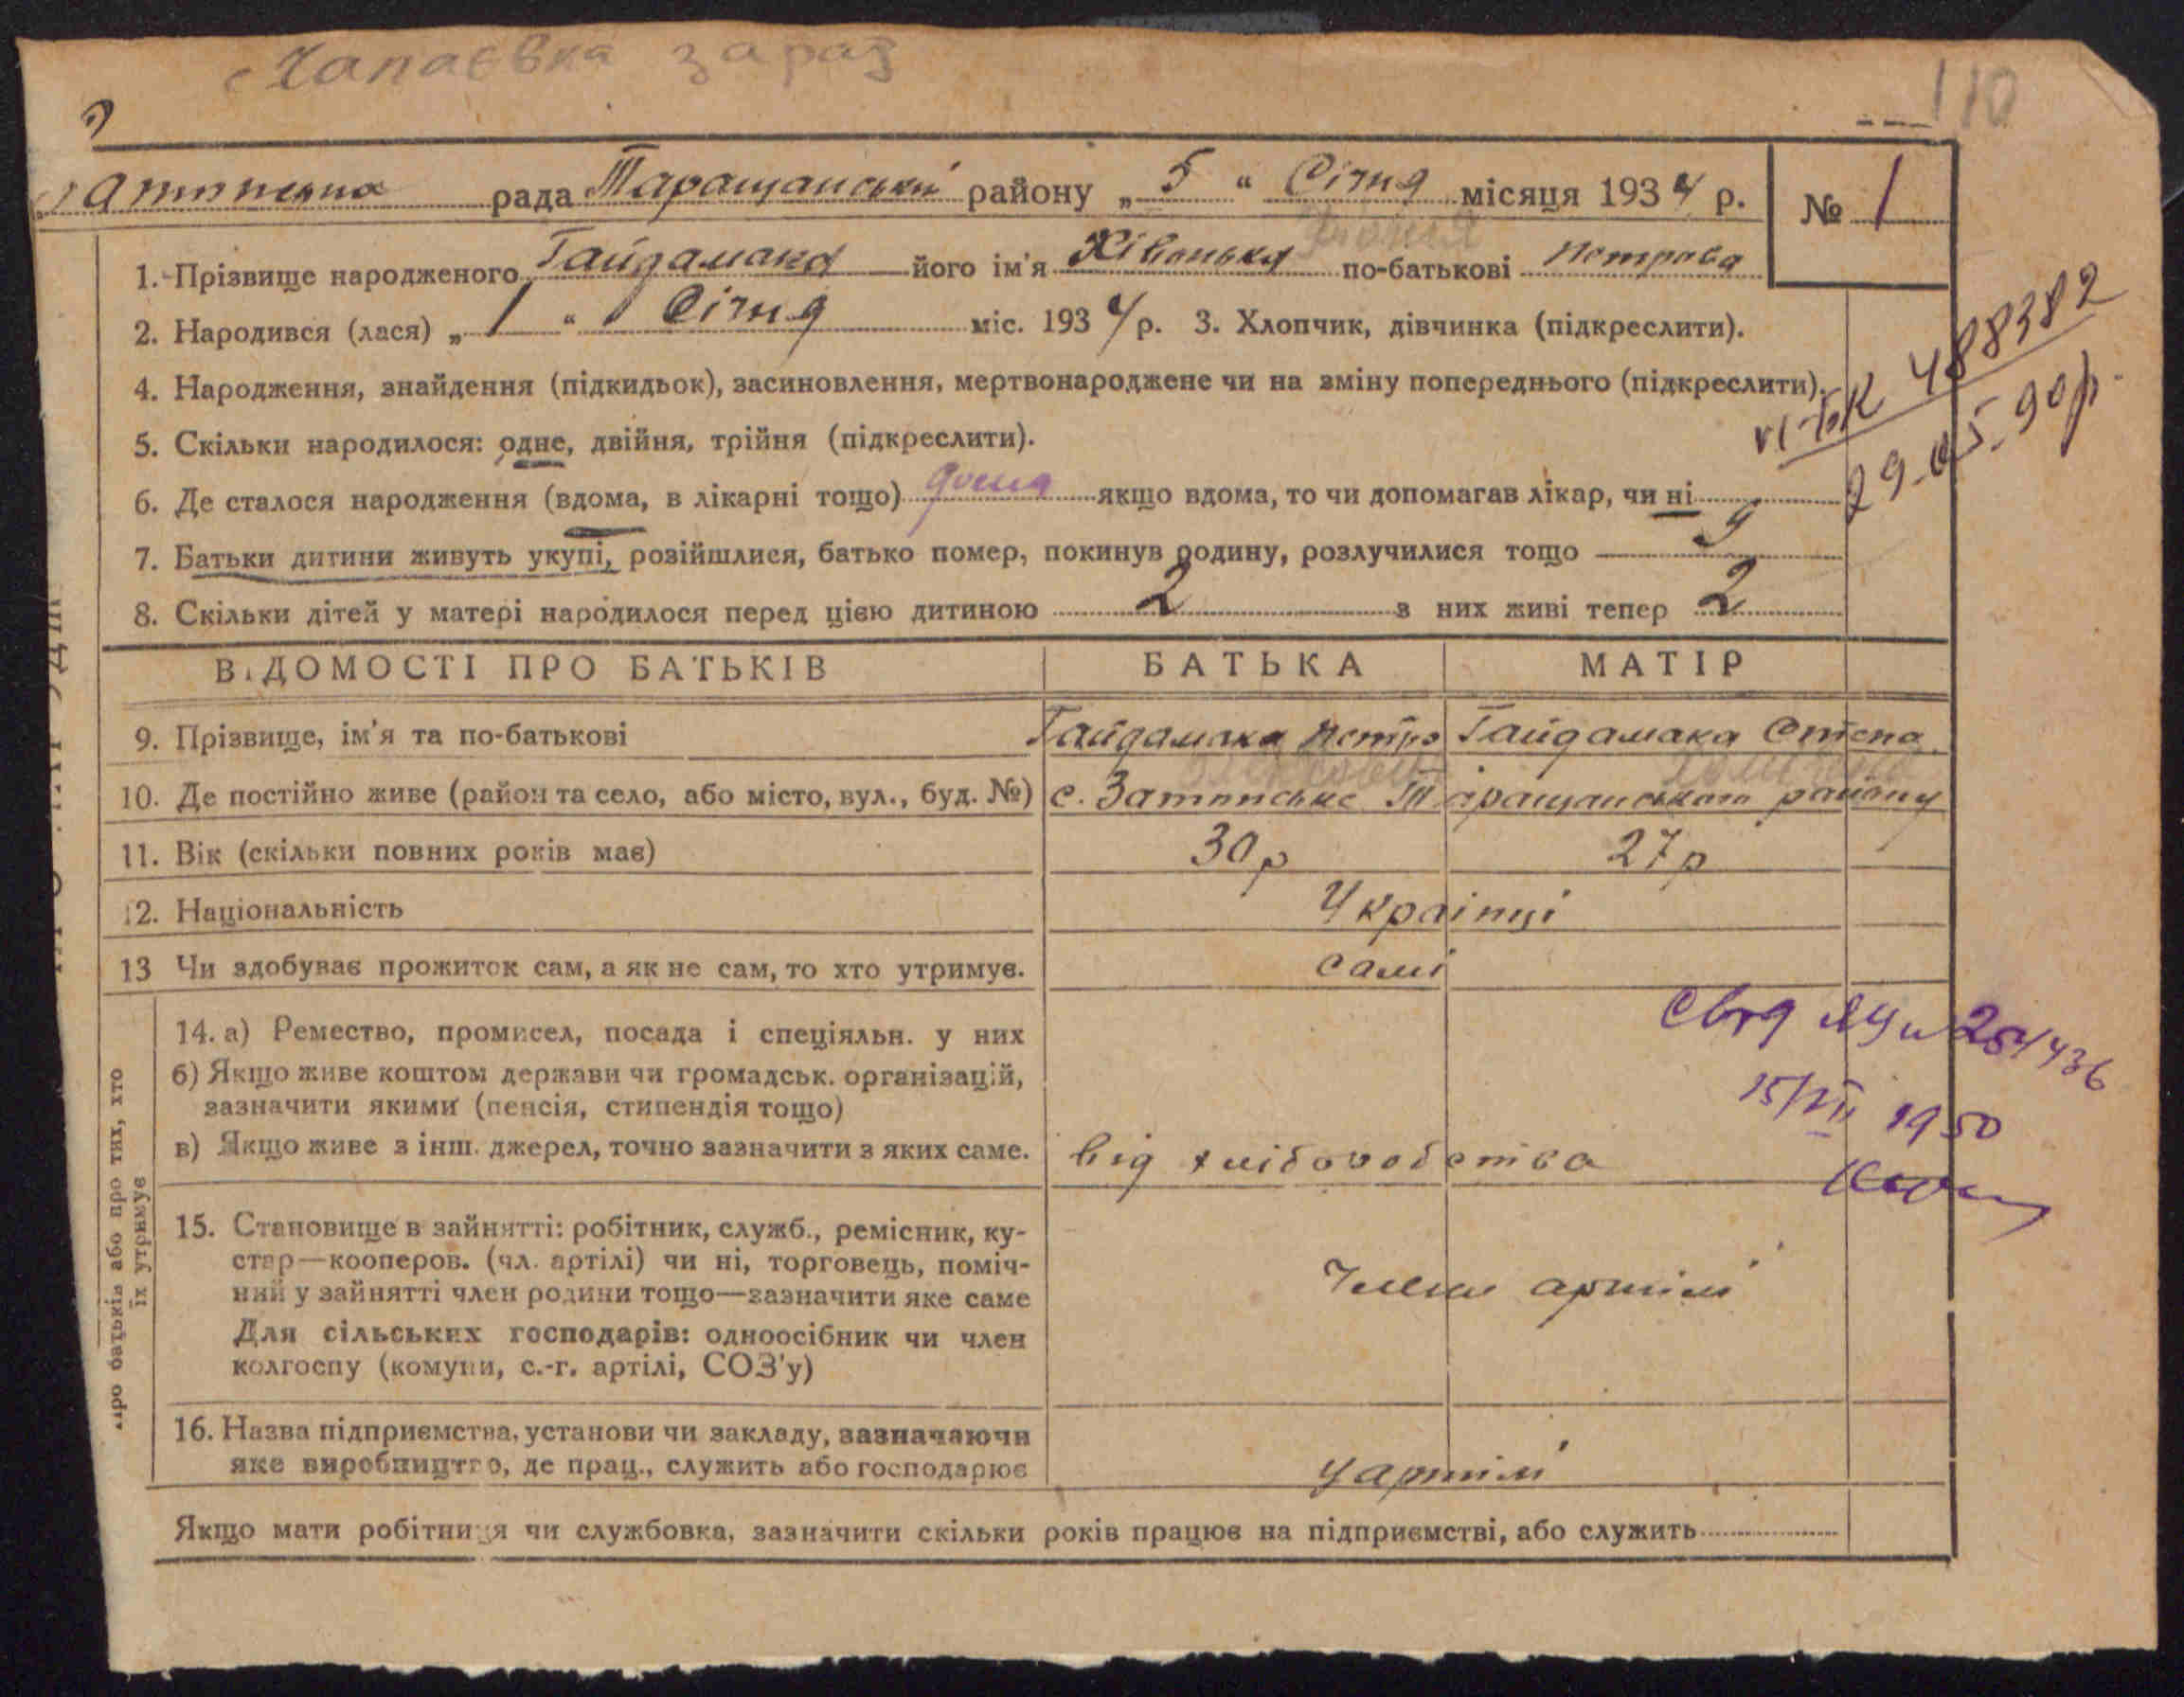 Чапаєвка зараз
110
рада Таращанський району „ 5 “ Січня місяця 1934 р.
№ 1
1. Прізвище народженого Гайдамака його ім'я по-батькові Петрова
2. Народився (лася) „ 1 “ Січня міс. 1934 р. 3. Хлопчик, дівчинка (підкреслити).
4. Народження, знайдення (підкидьок), засиновлення, мертвонароджене чи на зміну попереднього (підкреслити).
5. Скільки народилося: одне, двійня, трійня (підкреслити).
488382
29.05.90р.
6. Де сталося народження (вдома, в лікарні тощо) дома якщо вдома, то чи допомагав лікар, чи ні
7. Батьки дитини живуть укупі, розійшлися, батько помер, покинув родину, розлучилися тощо
8. Скільки дітей у матері народилося перед цією дитиною 2 з них живі тепер 2
ВІДОМОСТІ ПРО БАТЬКІВ БАТЬКА МАТІР
9. Прізвище, ім'я та по-батькові Гайдамака Петро Гайдамака Степа
10. Де постійно живе (район та село, або місто, вул., буд. №) с. Затонське Таращанського району
11. Вік (скільки повних років має) 30 р 27 р
12. Національність Українці
13 Чи здобуває прожиток сам, а як не сам, то хто утримує. самі
про батьків або про тих, хто
їх утримує
14. а) Ремество, промисел, посада і спеціяльн. у них
б) Якщо живе коштом держави чи громадськ. організацій,
зазначити якими (пенсія, стипендія тощо)
в) Якщо живе з інш. джерел, точно зазначити з яких саме. від хліборобства
254436
15/VII 1950
15. Становище в зайнятті: робітник, служб., ремісник, ку-
стар—кооперов. (чл. артілі) чи ні, торговець, поміч-
ний у зайнятті член родини тощо—зазначити яке саме
Для сільських господарів: одноосібник чи член
колгоспу (комуни, с.-г. артілі, СОЗ'у)
Члени артілі
16. Назва підприємства, установи чи закладу, зазначаючи
яке виробництво, де прац., служить або господарює У артілі
Якщо мати робітниця чи службовка, зазначити скільки років працює на підприємстві, або служить